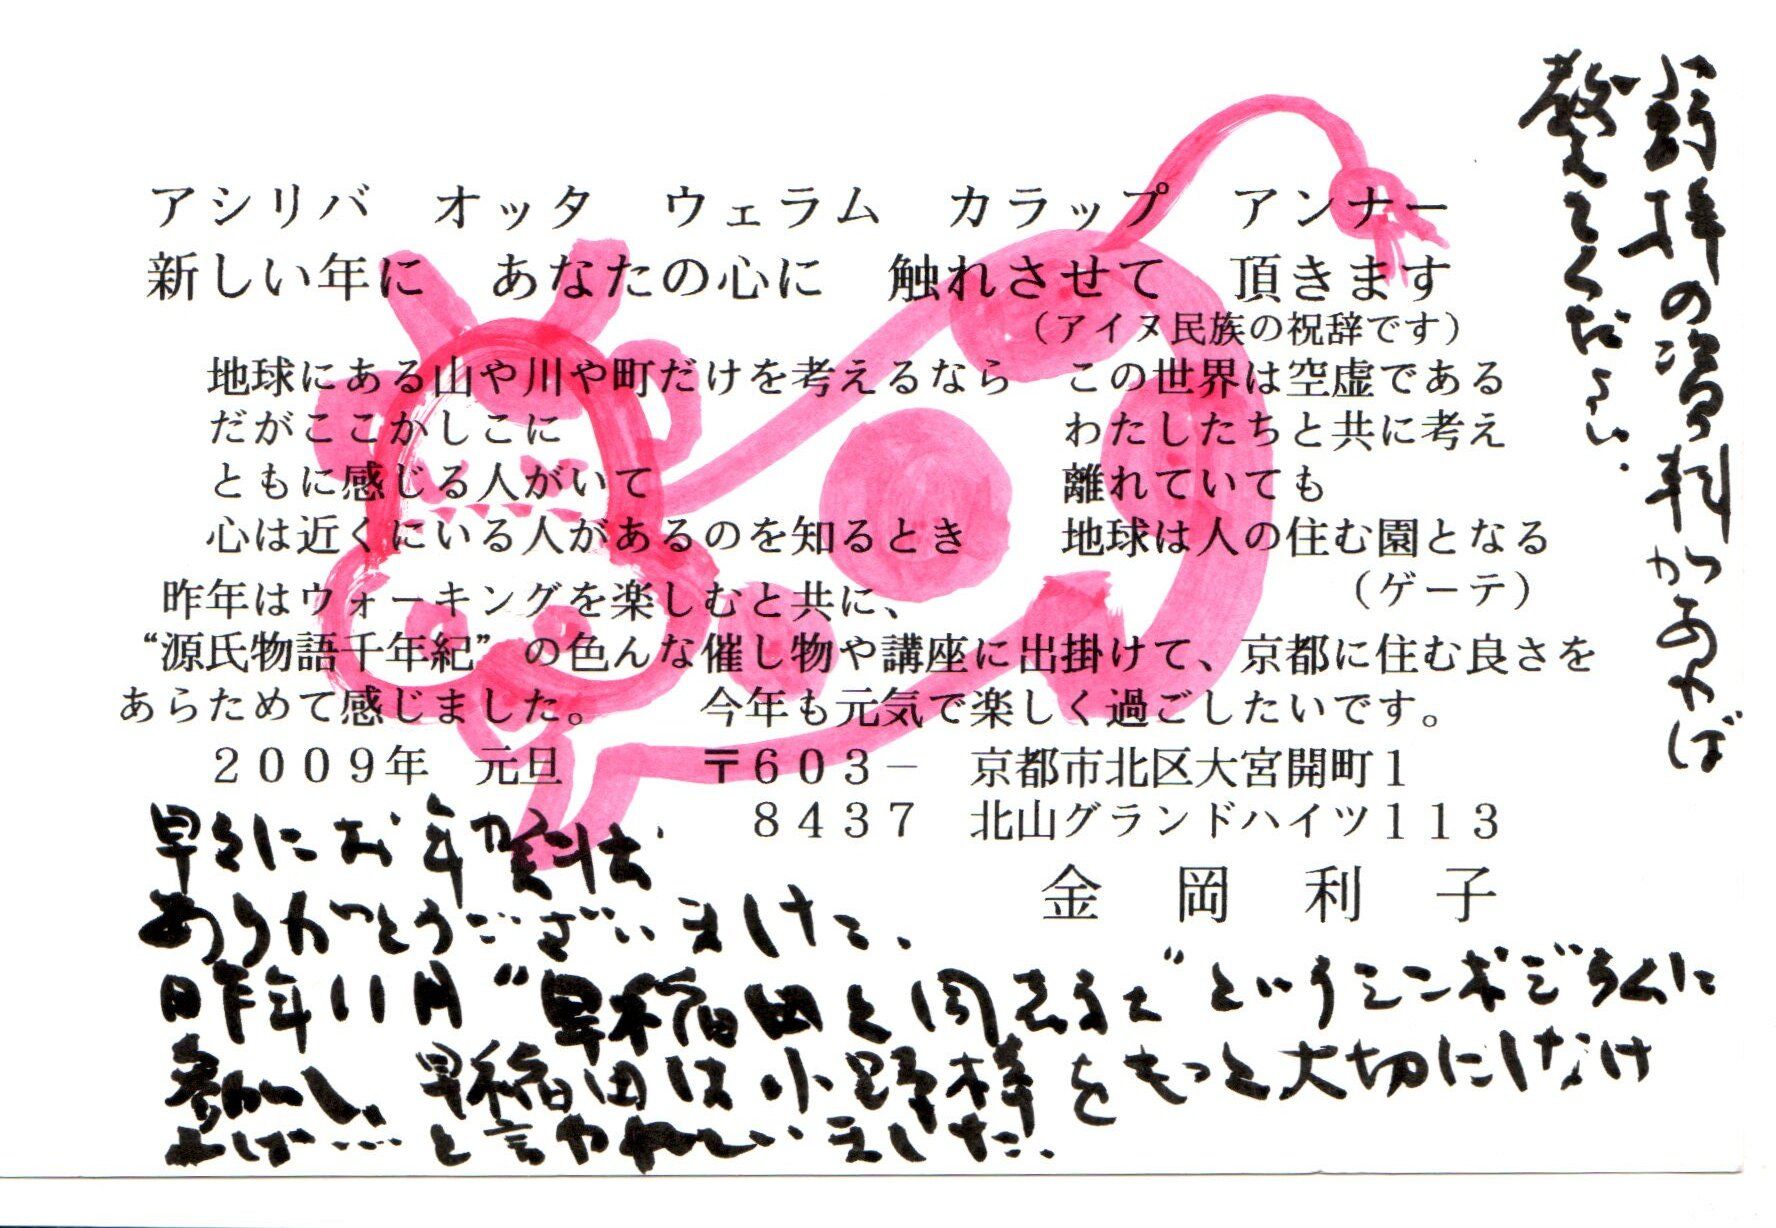 アシリバ　オッタ　ウェラム　カラップ　アンナー
新しい年に　あなたの心に　触れさせて　頂きます
（アイヌ民族の祝辞です）
地球にある山や川や町だけを考えるなら　この世界は空虚である
だがここかしこに　わたしたちと共に考え
ともに感じる人がいて　離れていても
心は近くにいる人があるのを知るとき　地球は人の住む園となる
（ゲーテ）
昨年はウォーキングを楽しむと共に、
“源氏物語千年紀”の色んな催し物や講座に出掛けて、京都に住む良さを
あらためて感じました。　今年も元気で楽しく過ごしたいです。
２００９年　元旦　〒６０３－　京都市北区大宮開町１
８４３７　北山グランドハイツ１１３
金岡利子
早々にお年賀状
ありがとうございました、
昨年11月“早稲田と同志社”というシンポジウムに
参加し、早稲田は小野梓をもっと大切にしなけ
れば…と言われていました.
小野梓の資料があれば
教えてください.